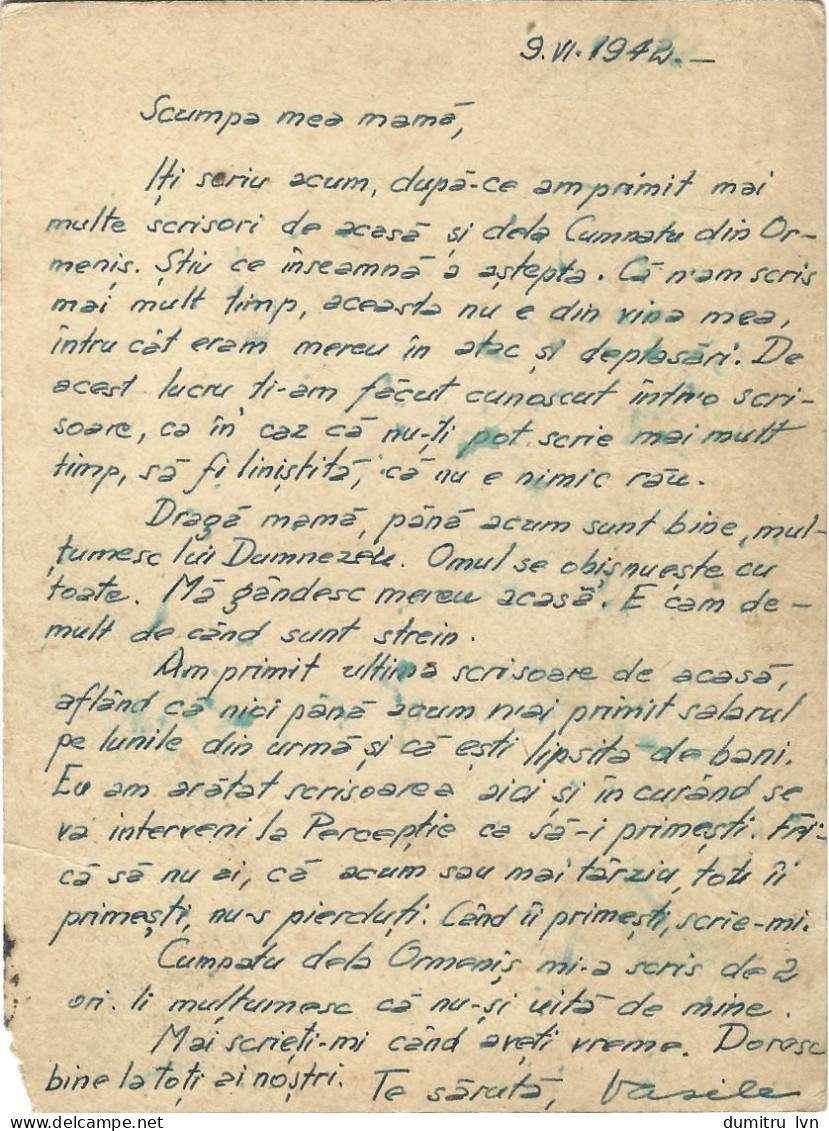 9.VI.1942.—
Scumpa mea mamă,
Iți scriu acum, după-ce am primit mai
multe scrisori de acasă și dela Cumnatu din Or-
meniș. Știu ce înseamnă a aștepta. Că n'am scris
mai mult timp, aceasta nu e din vina mea,
întru cât eram mereu în atac și deplasări. De
acest lucru ti-am făcut cunoscut într'o scri-
soare, ca în caz că nu-ți pot scrie mai mult
timp, să fi liniștită, că nu e nimic rău.
Dragă mamă, până acum sunt bine, mul-
țumesc lui Dumnezeu. Omul se obișnuește cu
toate. Mă gândesc mereu acasă. E cam de-
mult de când sunt strein.
Am primit ultima scrisoare de acasă,
aflând că nici până acum n'ai primit salarul
pe lunile din urmă și că ești lipsită de bani.
Eu am arătat scrisoarea aici și în curând se
va interveni la Percepție ca să-i primești. Fri-
că să nu ai, că acum sau mai târziu, totu îi
primești, nu-s pierduți. Când îi primești, scrie-mi.
Cumnatu dela Ormeniș mi-a scris de 2
ori. Ii mulțumesc că nu-și uită de mine.
Mai scrieți-mi când aveți vreme. Doresc
bine la toți ai noștri. Te sărută, Vasile
dumitru lvn